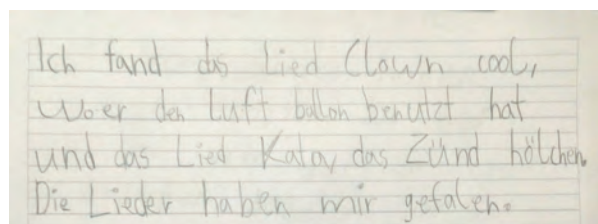 Ich fand das Lied Clown cool,
wo er den Luft ballon benutzt hat
und das Lied Kala, das Zünd hölchen.
Die Lieder haben mir gefalen.